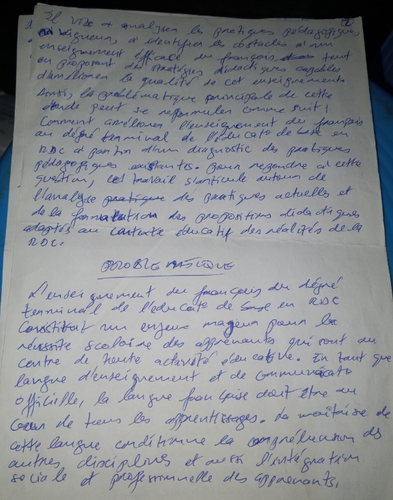 Il vise à analyser les pratiques pédagogiques
en vigueur, à identifier les obstacles à un
enseignement efficace du français, tout
en proposant des stratégies didactiques capables
d'améliorer la qualité de cet enseignement.
Ainsi, la problématique principale de cette
étude peut se reformuler comme suit :
Comment améliorer l'enseignement du français
au degré terminal de l'éducation de base en
RDC à partir d'un diagnostic des pratiques
pédagogiques existantes. Pour repondre à cette
question, ce travail s'articule autour de
l'analyse pratique des pratiques actuelles et
de la formulation des propositions didactiques
adaptés au contexte éducatif des réalités de la
RDC.
PROBLEMATIQUE
L'enseignement du français du dégré
terminal de l'éducation de base en RDC
Constitue un enjeu majeur pour la
réussite scolaire des apprenants qui sont au
centre de toute activité éducative. En tant que
langue d'enseignement et de communicat°
officielle, la langue française doit être au
Cœur de tous les apprentissages. La maîtrise de
cette langue conditionne la compréhension des
autres disciplines et aussi l'intégration
sociale et professionnelle des apprenants.